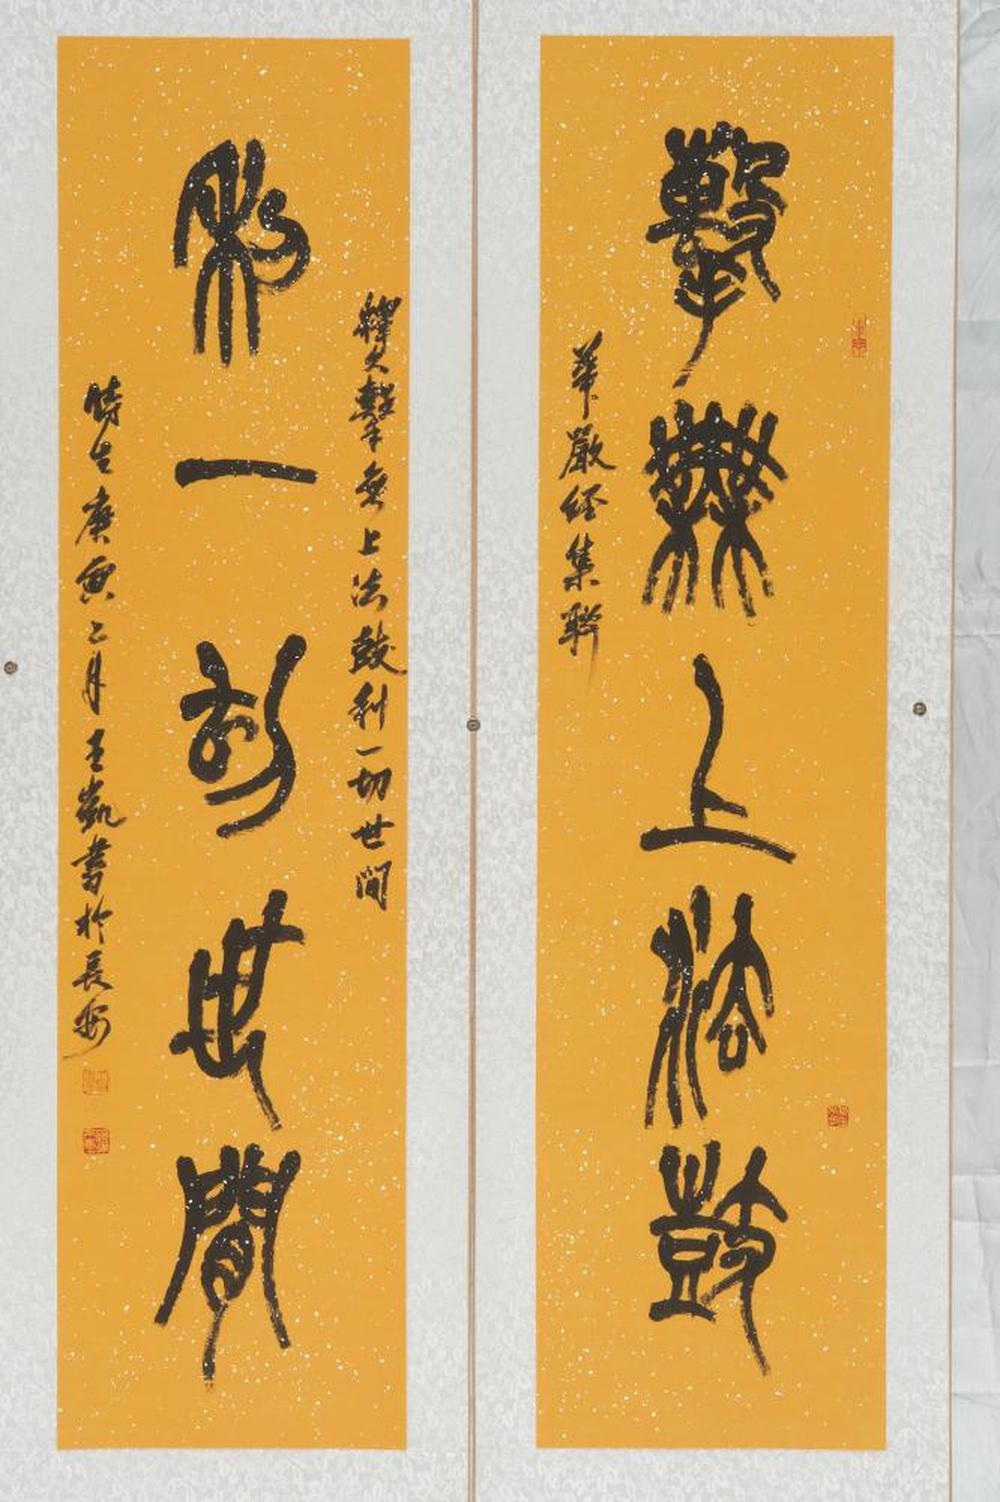 擊無上法鼓
華嚴經集聯
利一切世間
釋文擊無上法鼓利一切世間
時在庚寅二月王凱書於長安